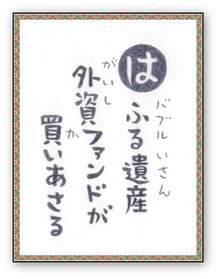 バブル いさん
はふる遺産
がいし
外資ファンドが
か
買いあさる